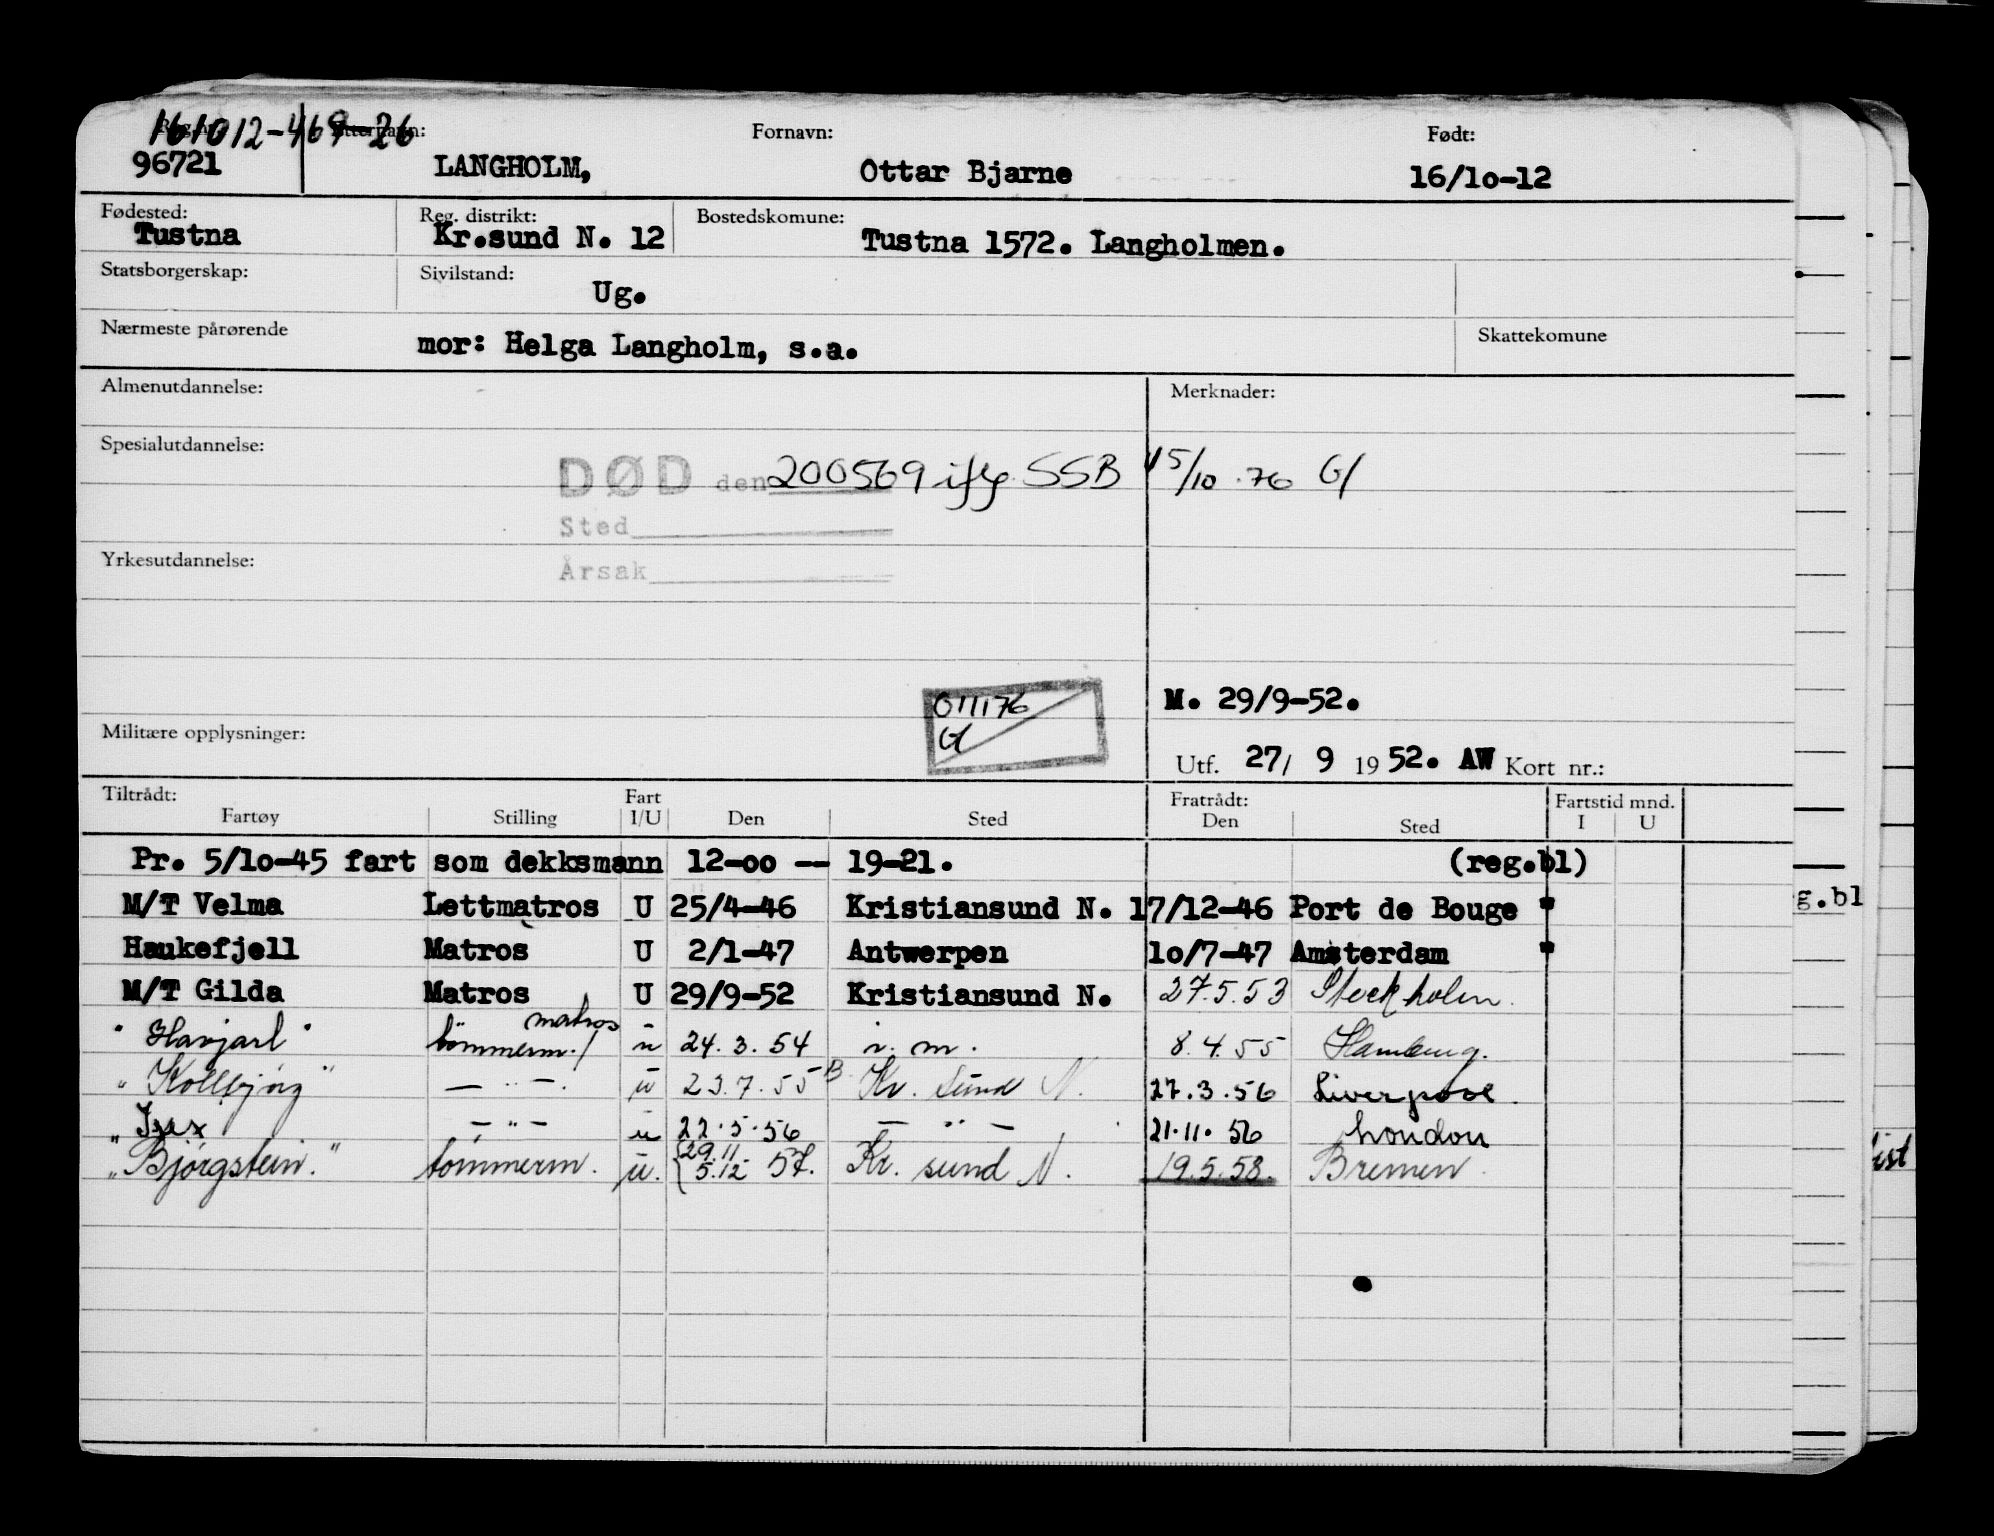 161012-469-26
Reg.nr. Etternavn: Fornavn: Født:
96721 LANGHOLM, Ottar Bjarne 16/10-12
Fødested: Reg. distrikt: Bostedskomune:
Tustna Kr.sund N. 12 Tustna 1572. Langholmen.
Statsborgerskap: Sivilstand:
Ug.
Nærmeste pårørende Skattekomune
mor: Helga Langholm, s.a.
Almenutdannelse: Merknader:
Spesialutdannelse:
DØD den 200569 iflg. SSB 15/10.76 Gl
Sted
Yrkesutdannelse:
Årsak
011176
Gl
M. 29/9-52.
Militære opplysninger:
Utf. 27/ 9 1952. AW Kort nr.:
Tiltrådt: Fart Fratrådt: Fartstid mnd.
Fartøy Stilling I/U Den Sted Den Sted I U
Pr. 5/10-45 fart som dekksmann 12-00 -- 19-21. (reg.bl)
M/T Velma Lettmatros U 25/4-46 Kristiansund N. 17/12-46 Port de Bouge "
g.bl
Haukefjell Matros U 2/1-47 Antwerpen 10/7-47 Amsterdam "
M/T Gilda Matros U 29/9-52 Kristiansund N. 27.5.53 Stockholm.
matros
"Havjarl" tömmerm./ u 24.3.54 i.m. 8.4.55 Hamburg.
"Kollbjörg" — " —. u 23.7.55 B Kr. Sund N. 27.3.56 Liverpool.
" — " — u 22.5.56 — " — 21.11.56 London
29.11
"Bjørgstein." tömmerm. u. 5.12 57. Kr. sund N. 19.5.58. Bremen.